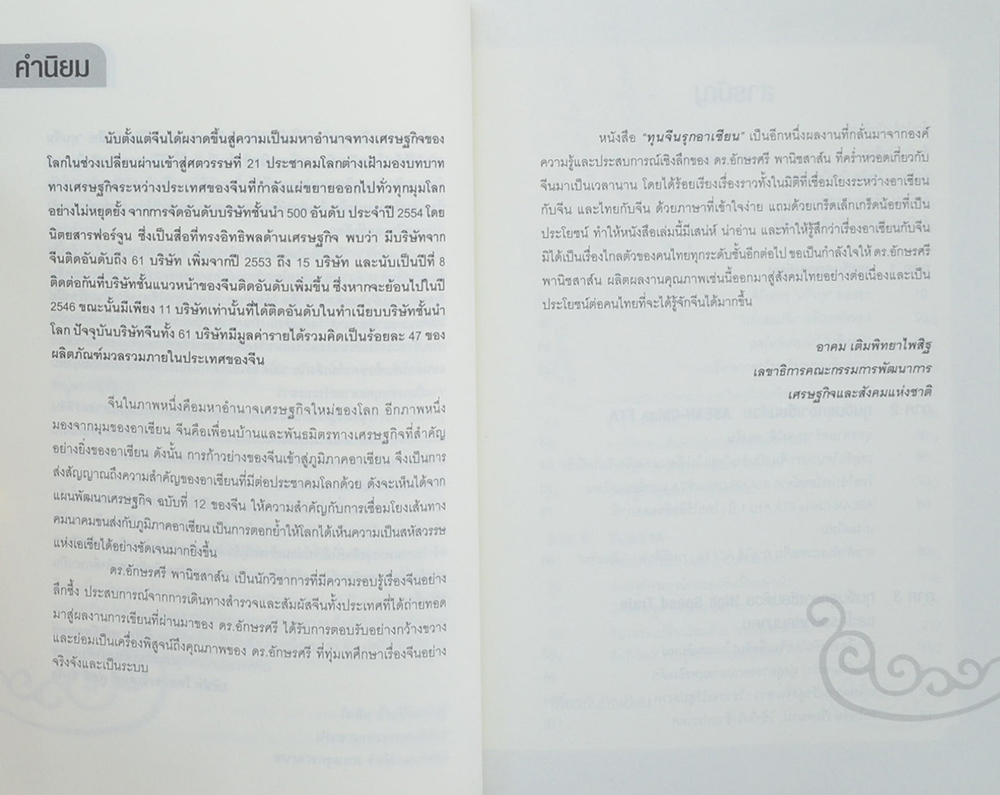 คำนิยม
นับตั้งแต่จีนได้ผงาดขึ้นสู่ความเป็นมหาอำนาจทางเศรษฐกิจของ
โลกในช่วงเปลี่ยนผ่านเข้าสู่ศตวรรษที่ 21 ประชาคมโลกต่างเฝ้ามองบทบาท
ทางเศรษฐกิจระหว่างประเทศของจีนที่กำลังแผ่ขยายออกไปทั่วทุกมุมโลก
อย่างไม่หยุดยั้ง จากการจัดอันดับบริษัทชั้นนำ 500 อันดับ ประจำปี 2554 โดย
นิตยสารฟอร์จูน ซึ่งเป็นสื่อที่ทรงอิทธิพลด้านเศรษฐกิจ พบว่า มีบริษัทจาก
จีนติดอันดับถึง 61 บริษัท เพิ่มจากปี 2553 ถึง 15 บริษัท และนับเป็นปีที่ 8
ติดต่อกันที่บริษัทชั้นแนวหน้าของจีนติดอันดับเพิ่มขึ้น ซึ่งหากจะย้อนไปในปี
2546 ขณะนั้นมีเพียง 11 บริษัทเท่านั้นที่ได้ติดอันดับในทำเนียบบริษัทชั้นนำ
โลก ปัจจุบันบริษัทจีนทั้ง 61 บริษัทมีมูลค่ารายได้รวมคิดเป็นร้อยละ 47 ของ
ผลิตภัณฑ์มวลรวมภายในประเทศของจีน
จีนในภาพหนึ่งคือมหาอำนาจเศรษฐกิจใหม่ของโลก อีกภาพหนึ่ง
มองจากมุมของอาเซียน จีนคือเพื่อนบ้านและพันธมิตรทางเศรษฐกิจที่สำคัญ
อย่างยิ่งของอาเซียน ดังนั้น การก้าวย่างของจีนเข้าสู่ภูมิภาคอาเซียน จึงเป็นการ
ส่งสัญญาณถึงความสำคัญของอาเซียนที่มีต่อประชาคมโลกด้วย ดังจะเห็นได้จาก
แผนพัฒนาเศรษฐกิจ ฉบับที่ 12 ของจีน ให้ความสำคัญกับการเชื่อมโยงเส้นทาง
คมนาคมขนส่งกับภูมิภาคอาเซียน เป็นการตอกย้ำให้โลกได้เห็นความเป็นสหัสวรรษ
แห่งเอเชียได้อย่างชัดเจนมากยิ่งขึ้น
ดร.อักษรศรี พานิชสาส์น เป็นนักวิชาการที่มีความรอบรู้เรื่องจีนอย่าง
ลึกซึ้ง ประสบการณ์จากการเดินทางสำรวจและสัมผัสจีนทั้งประเทศที่ได้ถ่ายทอด
มาสู่ผลงานการเขียนที่ผ่านมาของ ดร.อักษรศรี ได้รับการตอบรับอย่างกว้างขวาง
และย่อมเป็นเครื่องพิสูจน์ถึงคุณภาพของ ดร.อักษรศรี ที่ทุ่มเทศึกษาเรื่องจีนอย่าง
จริงจังและเป็นระบบ
หนังสือ "ทุนจีนรุกอาเซียน" เป็นอีกหนึ่งผลงานที่กลั่นมาจากองค์
ความรู้และประสบการณ์เชิงลึกของ ดร.อักษรศรี พานิชสาส์น ที่คร่ำหวอดเกี่ยวกับ
จีนมาเป็นเวลานาน โดยได้ร้อยเรียงเรื่องราวทั้งในมิติที่เชื่อมโยงระหว่างอาเซียน
กับจีน และไทยกับจีน ด้วยภาษาที่เข้าใจง่าย แถมด้วยเกร็ดเล็กเกร็ดน้อยที่เป็น
ประโยชน์ ทำให้หนังสือเล่มนี้มีเสน่ห์ น่าอ่าน และทำให้รู้สึกว่าเรื่องอาเซียนกับจีน
มิได้เป็นเรื่องไกลตัวของคนไทยทุกระดับชั้นอีกต่อไป ขอเป็นกำลังใจให้ ดร.อักษรศรี
พานิชสาส์น ผลิตผลงานคุณภาพเช่นนี้ออกมาสู่สังคมไทยอย่างต่อเนื่องและเป็น
ประโยชน์ต่อคนไทยที่จะได้รู้จักจีนได้มากขึ้น
อาคม เติมพิทยาไพสิฐ
เลขาธิการคณะกรรมการพัฒนาการ
เศรษฐกิจและสังคมแห่งชาติ